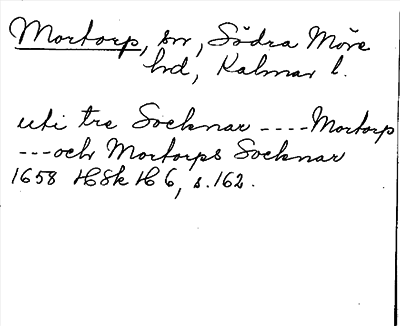 Mortorp, sn, Södra Möre
hd, Kalmar l.
uti tre Socknar ---- Mortorp
--- och Mortorps Socknar
1658 HSk H 6, s. 162.